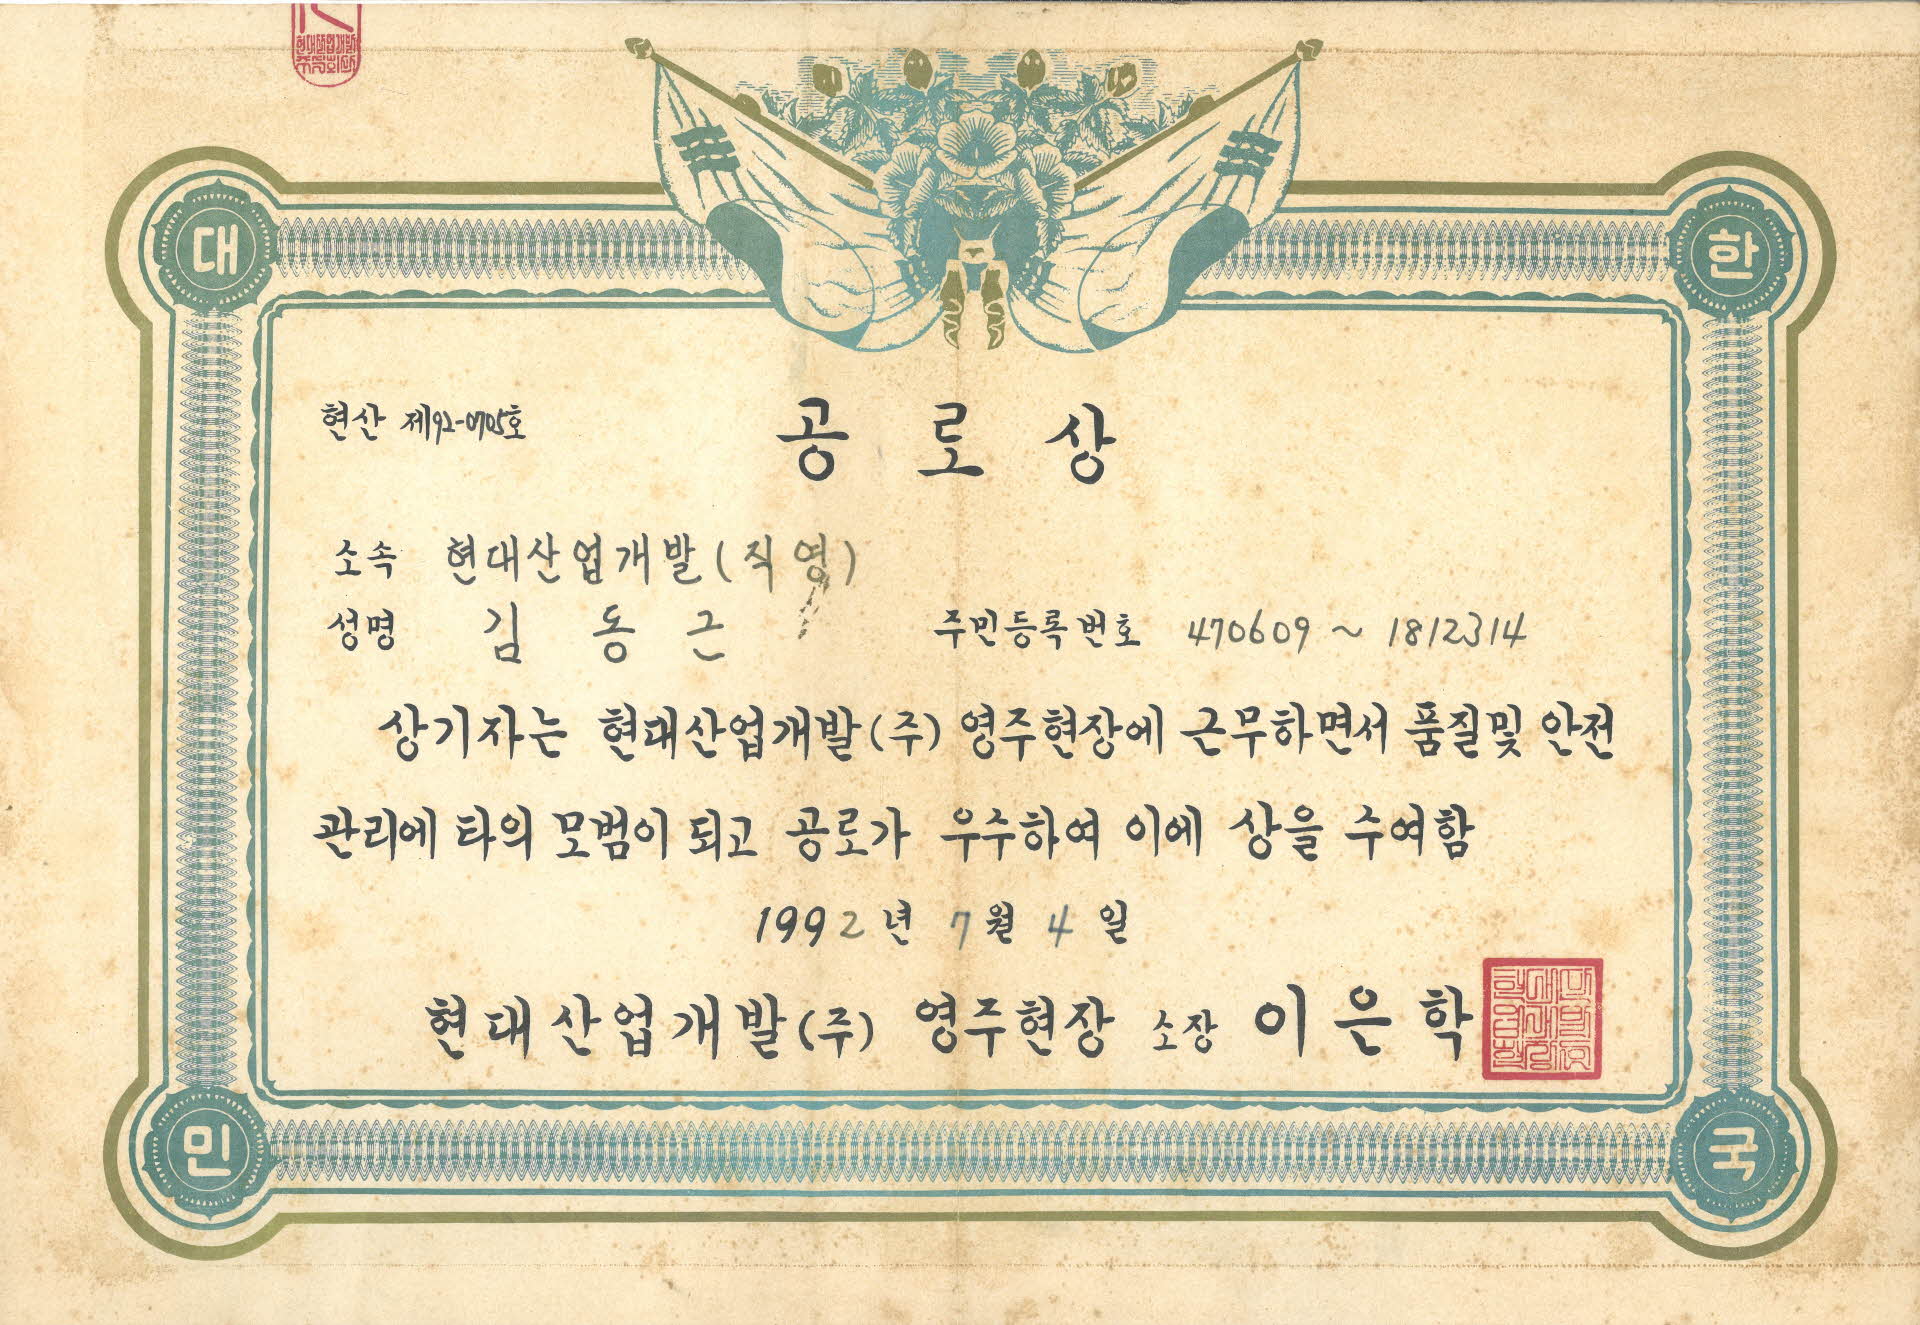 대 한
현산 제92-0705호
공 로 상
소속 현대산업개발 (직영)
성명 김 동 근 주민등록번호 470609 ~ 1812314
상기자는 현대산업개발(주) 영주현장에 근무하면서 품질및 안전
관리에 타의 모범이 되고 공로가 우수하여 이에 상을 수여함
1992년 7월 4일
현대산업개발(주) 영주현장 소장 이은학
민 국